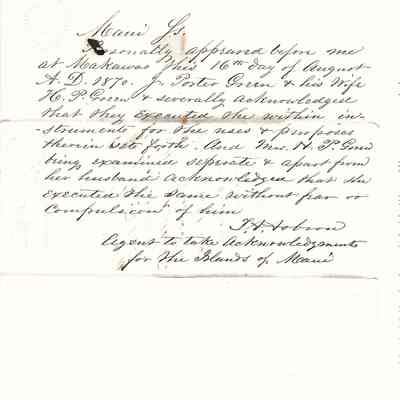 Maui Ss.
Personally appeared before me
at Makawao this 16th day of August
A.D. 1870. J. Porter Green & his Wife
H. P. Green & severally acknowledged
that they executed the within in-
-struments for the uses & purposes
therein set forth. And Mrs. H. P. Green
being examined seperate & apart from
her husband acknowledged that she
executed the same without fear or
Compulsion of him
T. H. Hobron
Agent to take Acknowledgments
for the Islands of Maui